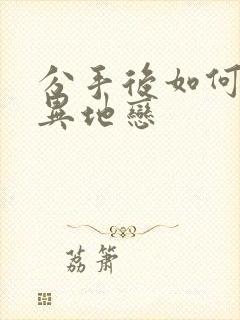 分手後如何
異地戀
荔簫